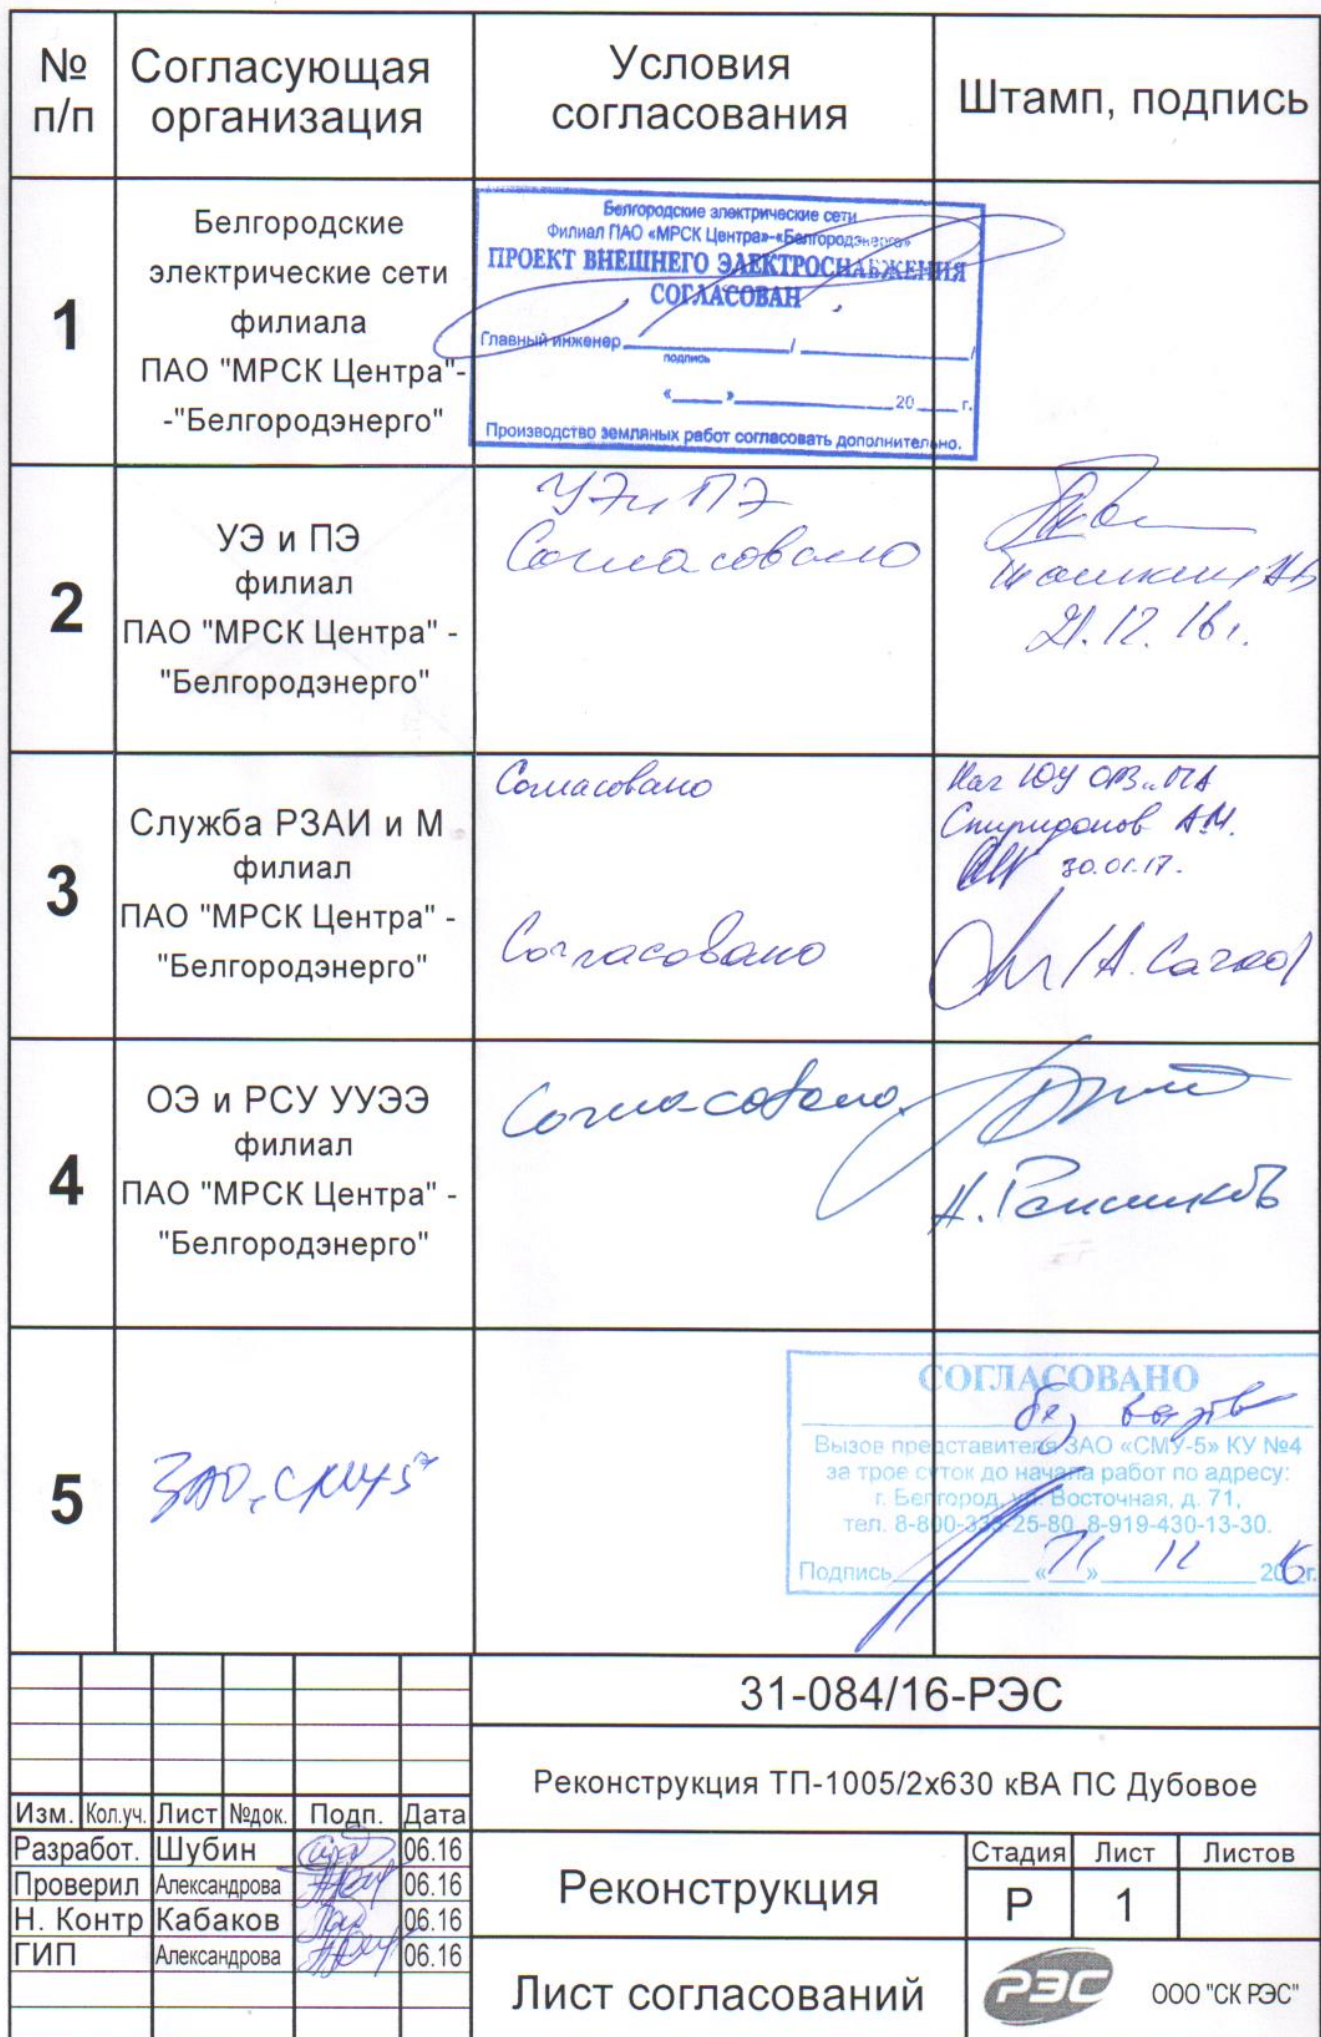 № п/п
Согласующая организация
Условия согласования
Штамп, подпись
1
Белгородские
электрические сети
филиала
ПАО "МРСК Центра"-
-"Белгородэнерго"
Белгородские электрические сети
Филиал ПАО «МРСК Центра»-«Белгородэнерго»
ПРОЕКТ ВНЕШНЕГО ЭЛЕКТРОСНАБЖЕНИЯ
СОГЛАСОВАН
Главный инженер / /
подпись
« » 20 г.
Производство земляных работ согласовать дополнительно.
2
УЭ и ПЭ
филиал
ПАО "МРСК Центра" -
"Белгородэнерго"
УЭ и ПЭ
Согласовано
21.12.16г.
3
Служба РЗАИ и М
филиал
ПАО "МРСК Центра" -
"Белгородэнерго"
Согласовано
Спиридонов А.М.
30.01.17.
Согласовано
4
ОЭ и РСУ УУЭЭ
филиал
ПАО "МРСК Центра" -
"Белгородэнерго"
Согласовано
5
ЗАО "СМУ-5"
СОГЛАСОВАНО
Вызов представителя ЗАО «СМУ-5» КУ №4
за трое суток до начала работ по адресу:
г. Белгород, ул. Восточная, д. 71,
тел. 8-800-333-25-80, 8-919-430-13-30.
Подпись « » 2016г.
31-084/16-РЭС
Реконструкция ТП-1005/2х630 кВА ПС Дубовое
Изм. Кол.уч. Лист №док. Подп. Дата
Разработ. Шубин 06.16
Проверил Александрова 06.16
Н. Контр Кабаков 06.16
ГИП Александрова 06.16
Реконструкция
Стадия Лист Листов
Р 1
Лист согласований
РЭС ООО "СК РЭС"